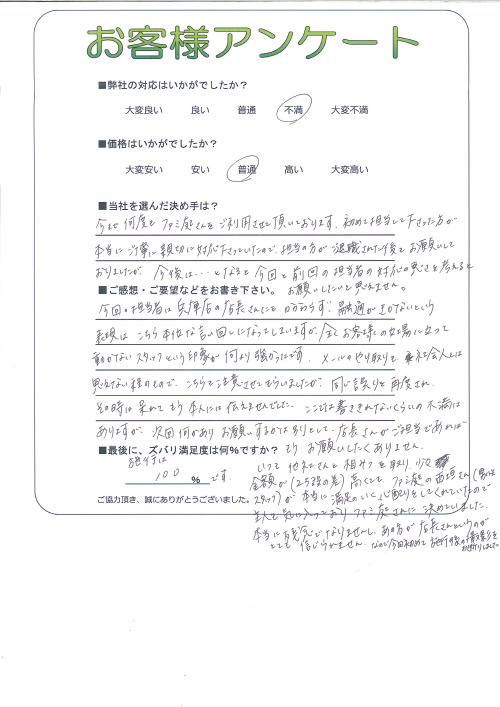 お客様アンケート
■弊社の対応はいかがでしたか？
大変良い 良い 普通 不満 大変不満
■価格はいかがでしたか？
大変安い 安い 普通 高い 大変高い
■当社を選んだ決め手は？
今まで何度もファミ庭さんをご利用させて頂いております。初めて担当して下さった方が
本当にご丁寧に親切に対応下さっていたので、担当の方が退職された後もお願いして
おりましたが、今後は…となると今回と前回の担当者の対応の悪さを考えると
■ご感想・ご要望などをお書き下さい。 お願いしたいと思えません。
今回の担当者は兵庫店の店長さんにもかかわらず、融通がきかないという
表現はこちら本位な言い回しになってしまいますが、全くお客様の立場に立って
動かないスタッフという印象が何より強かったです。メールのやり取りも社会人とは
思えない様のもので、こちらもご注意させてもらいましたが、同じ誤りを再度され、
その時は呆れてもう本人には伝えませんでした。ここでは書ききれないくらいの不満は
ありますが、次回何かありお願いするかは別として、店長さんがご担当であれば
■最後に、ズバリ満足度は何％ですか？ もうお願いしたくありません。
施行は
100 ％ です。
ご協力頂き、誠にありがとうございました。
いつも他社さんと相みつを取り、少々
金額が(2～5万の差)高くても、ファミ庭の西垣さん(男性
スタッフ)が本当に満足のいく心配りをしてくれていたので
主人も気に入っておりファミ庭さんに決めていました。
本当に残念でなりませんし、あの方が店長さんというのが
とても信じられません。なので今回初めて施行後の